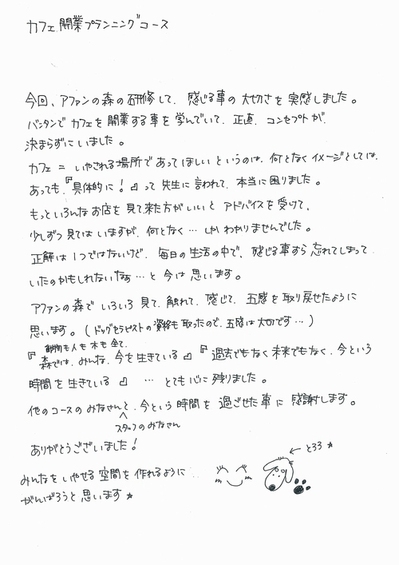 カフェ開業プランニングコース
今回、アファンの森の研修して、感じる事の大切さを実感しました。
バンタンでカフェを開業する事を学んでいて、正直、コンセプトが、
決まらずにいました。
カフェ = いやされる場所であってほしいというのは、何となくイメージとしては、
あっても、『具体的に!』って先生に言われて、本当に困りました。
もっといろんなお店を見て来た方がいいとアドバイスを受けて、
少しずつ見てはいますが、何となく…しかわかりませんでした。
正解は1つではないけど、毎日の生活の中で、感じる事すら忘れてしまって
いたのかもしれないなぁ…と今は思います。
アファンの森でいろいろ見て、触れて、感じて、五感を取り戻せたように
思います。(ドッグセラピストの資格も取ったので、五感は大切です…)
動物も人も木も全て、
『森では、みんな、今を生きている』『過去でもなく未来でもなく、今という
時間を生きている』 … とても心に残りました。
他のコースのみなさんと、今という時間を過ごせた事に感謝します。
スタッフのみなさん
ありがとうございました!
みんなをいやせる空間を作れるように
がんばろうと思います☆
← とろろ☆